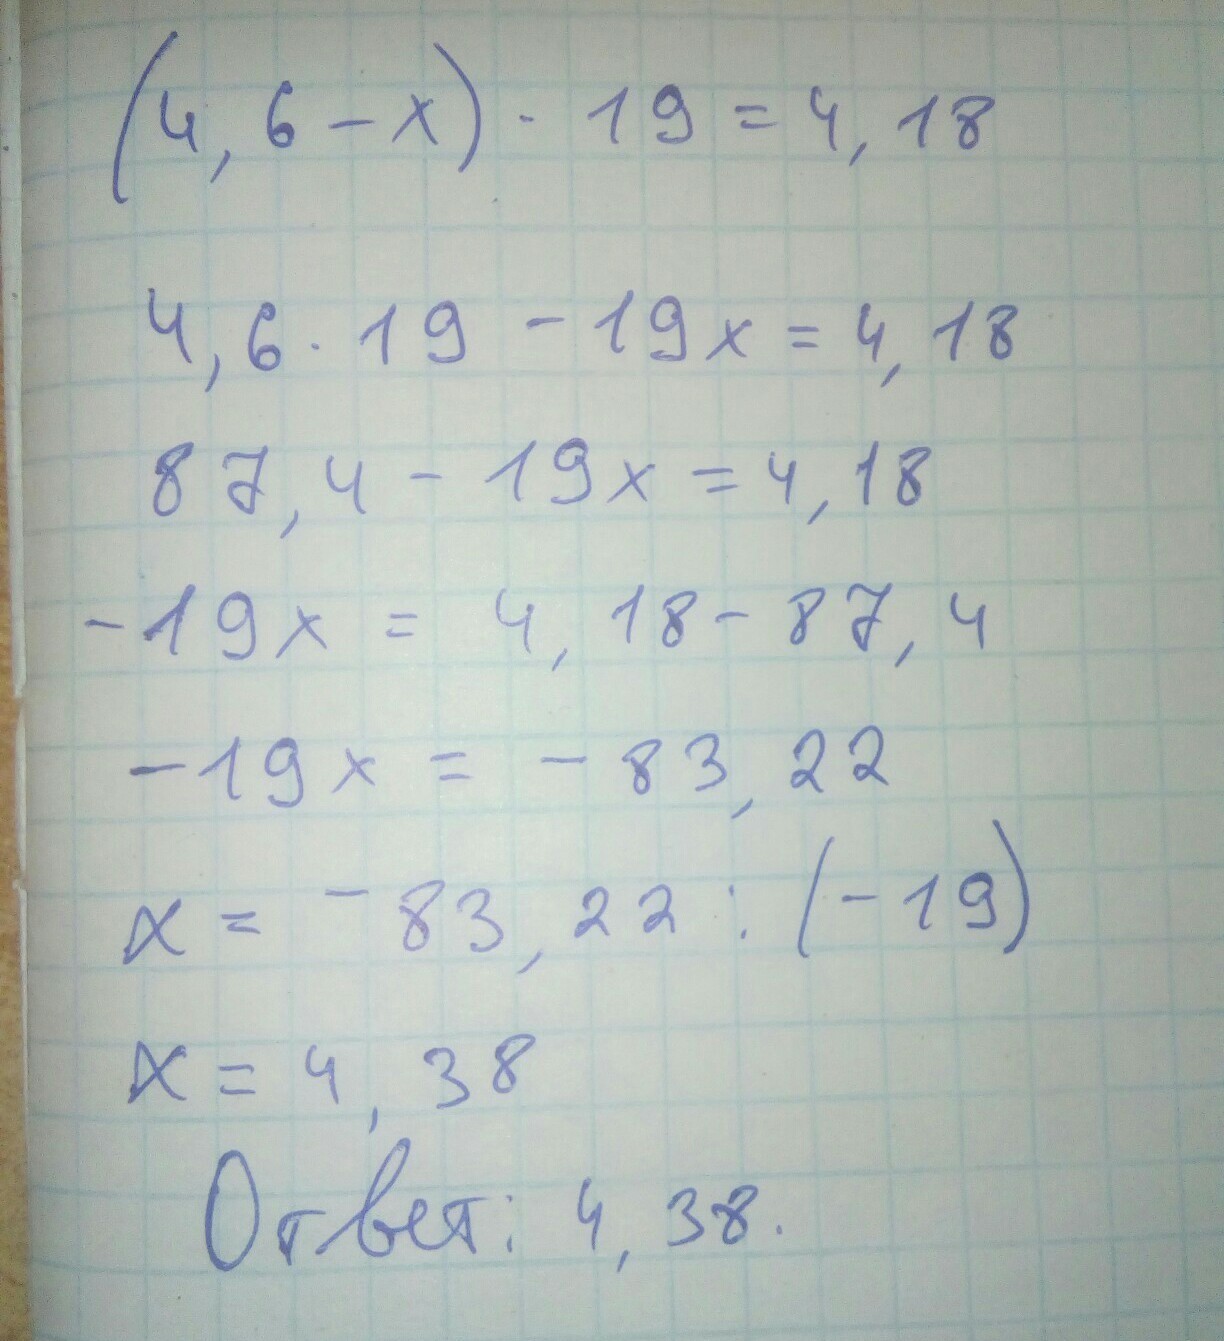 (4,6-x)·19=4,18
4,6·19-19x=4,18
87,4-19x=4,18
-19x=4,18-87,4
-19x=-83,22
x=-83,22:(-19)
x=4,38
Ответ: 4,38.